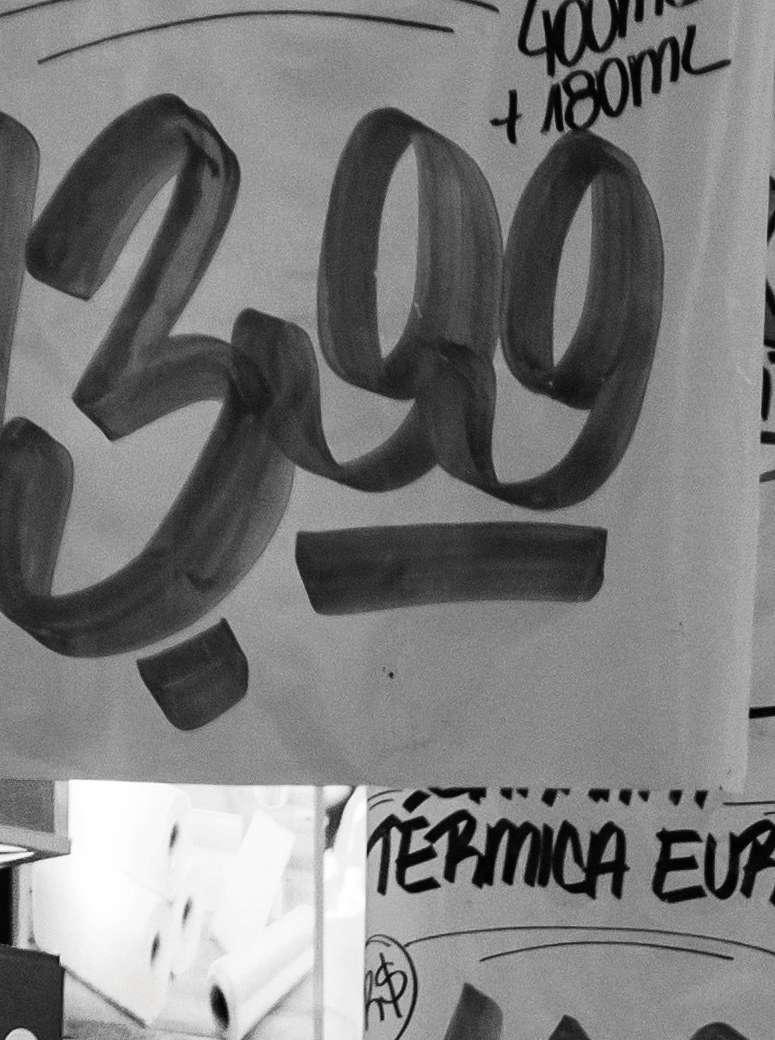 400ML
+ 180ML
13,99
TÉRMICA EUR
R$